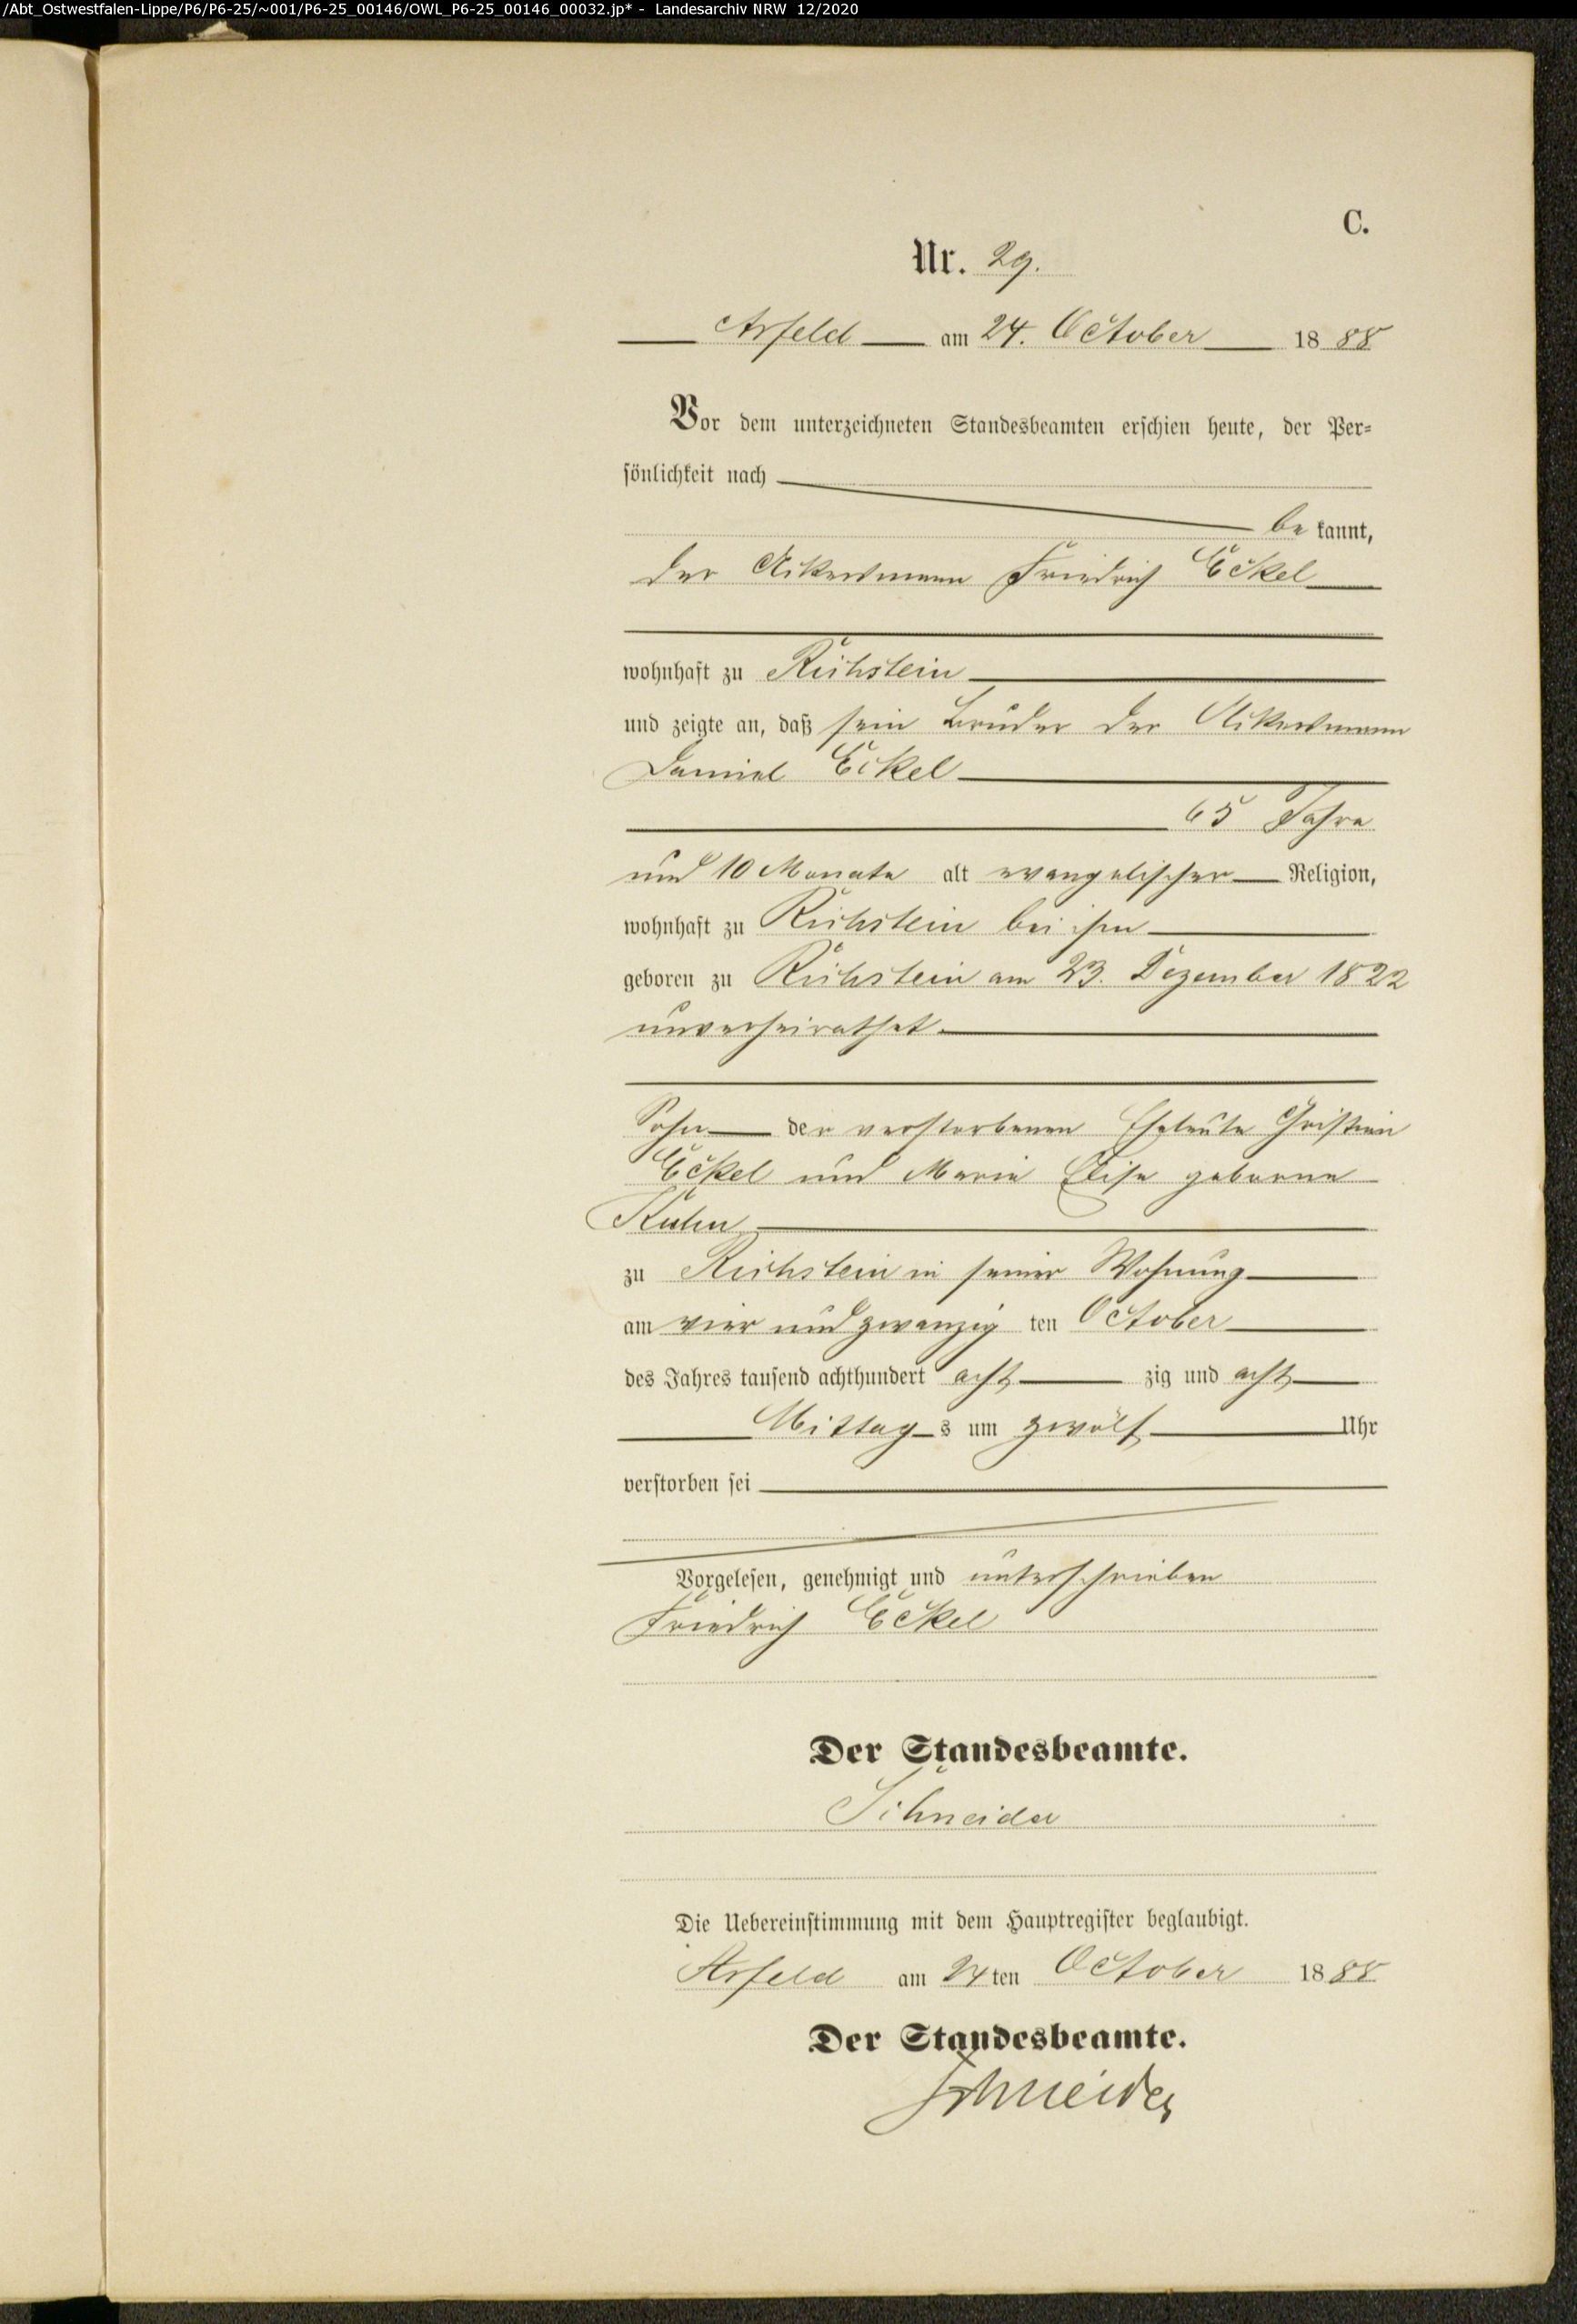 /Abt_Ostwestfalen-Lippe/P6/P6-25/~001/P6-25_00146/OWL_P6-25_00146_00032.jp* - Landesarchiv NRW 12/2020
C.
Nr. 29.
Arfeld am 24. October 1888
Vor dem unterzeichneten Standesbeamten erschien heute, der Per-
sönlichkeit nach
bekannt,
der Ackersmann Friedrich Eckel
wohnhaft zu Richstein
und zeigte an, daß sein Bruder der Ackersmann
Daniel Eckel
65 Jahre
und 10 Monate alt evangelischer Religion,
wohnhaft zu Richstein bei ihm
geboren zu Richstein am 23. Dezember 1822
unverheirathet
Sohn der verstorbenen Eheleute Christian
Eckel und Marie Elise geborne
Kuhn
zu Richstein in seiner Wohnung
am vier und zwanzig ten October
des Jahres tausend achthundert acht zig und acht
Mittags um zwölf Uhr
verstorben sei
Vorgelesen, genehmigt und unterschrieben
Friedrich Eckel
Der Standesbeamte.
Schneider
Die Uebereinstimmung mit dem Hauptregister beglaubigt.
Arfeld am 24ten October 1888
Der Standesbeamte.
Schneider